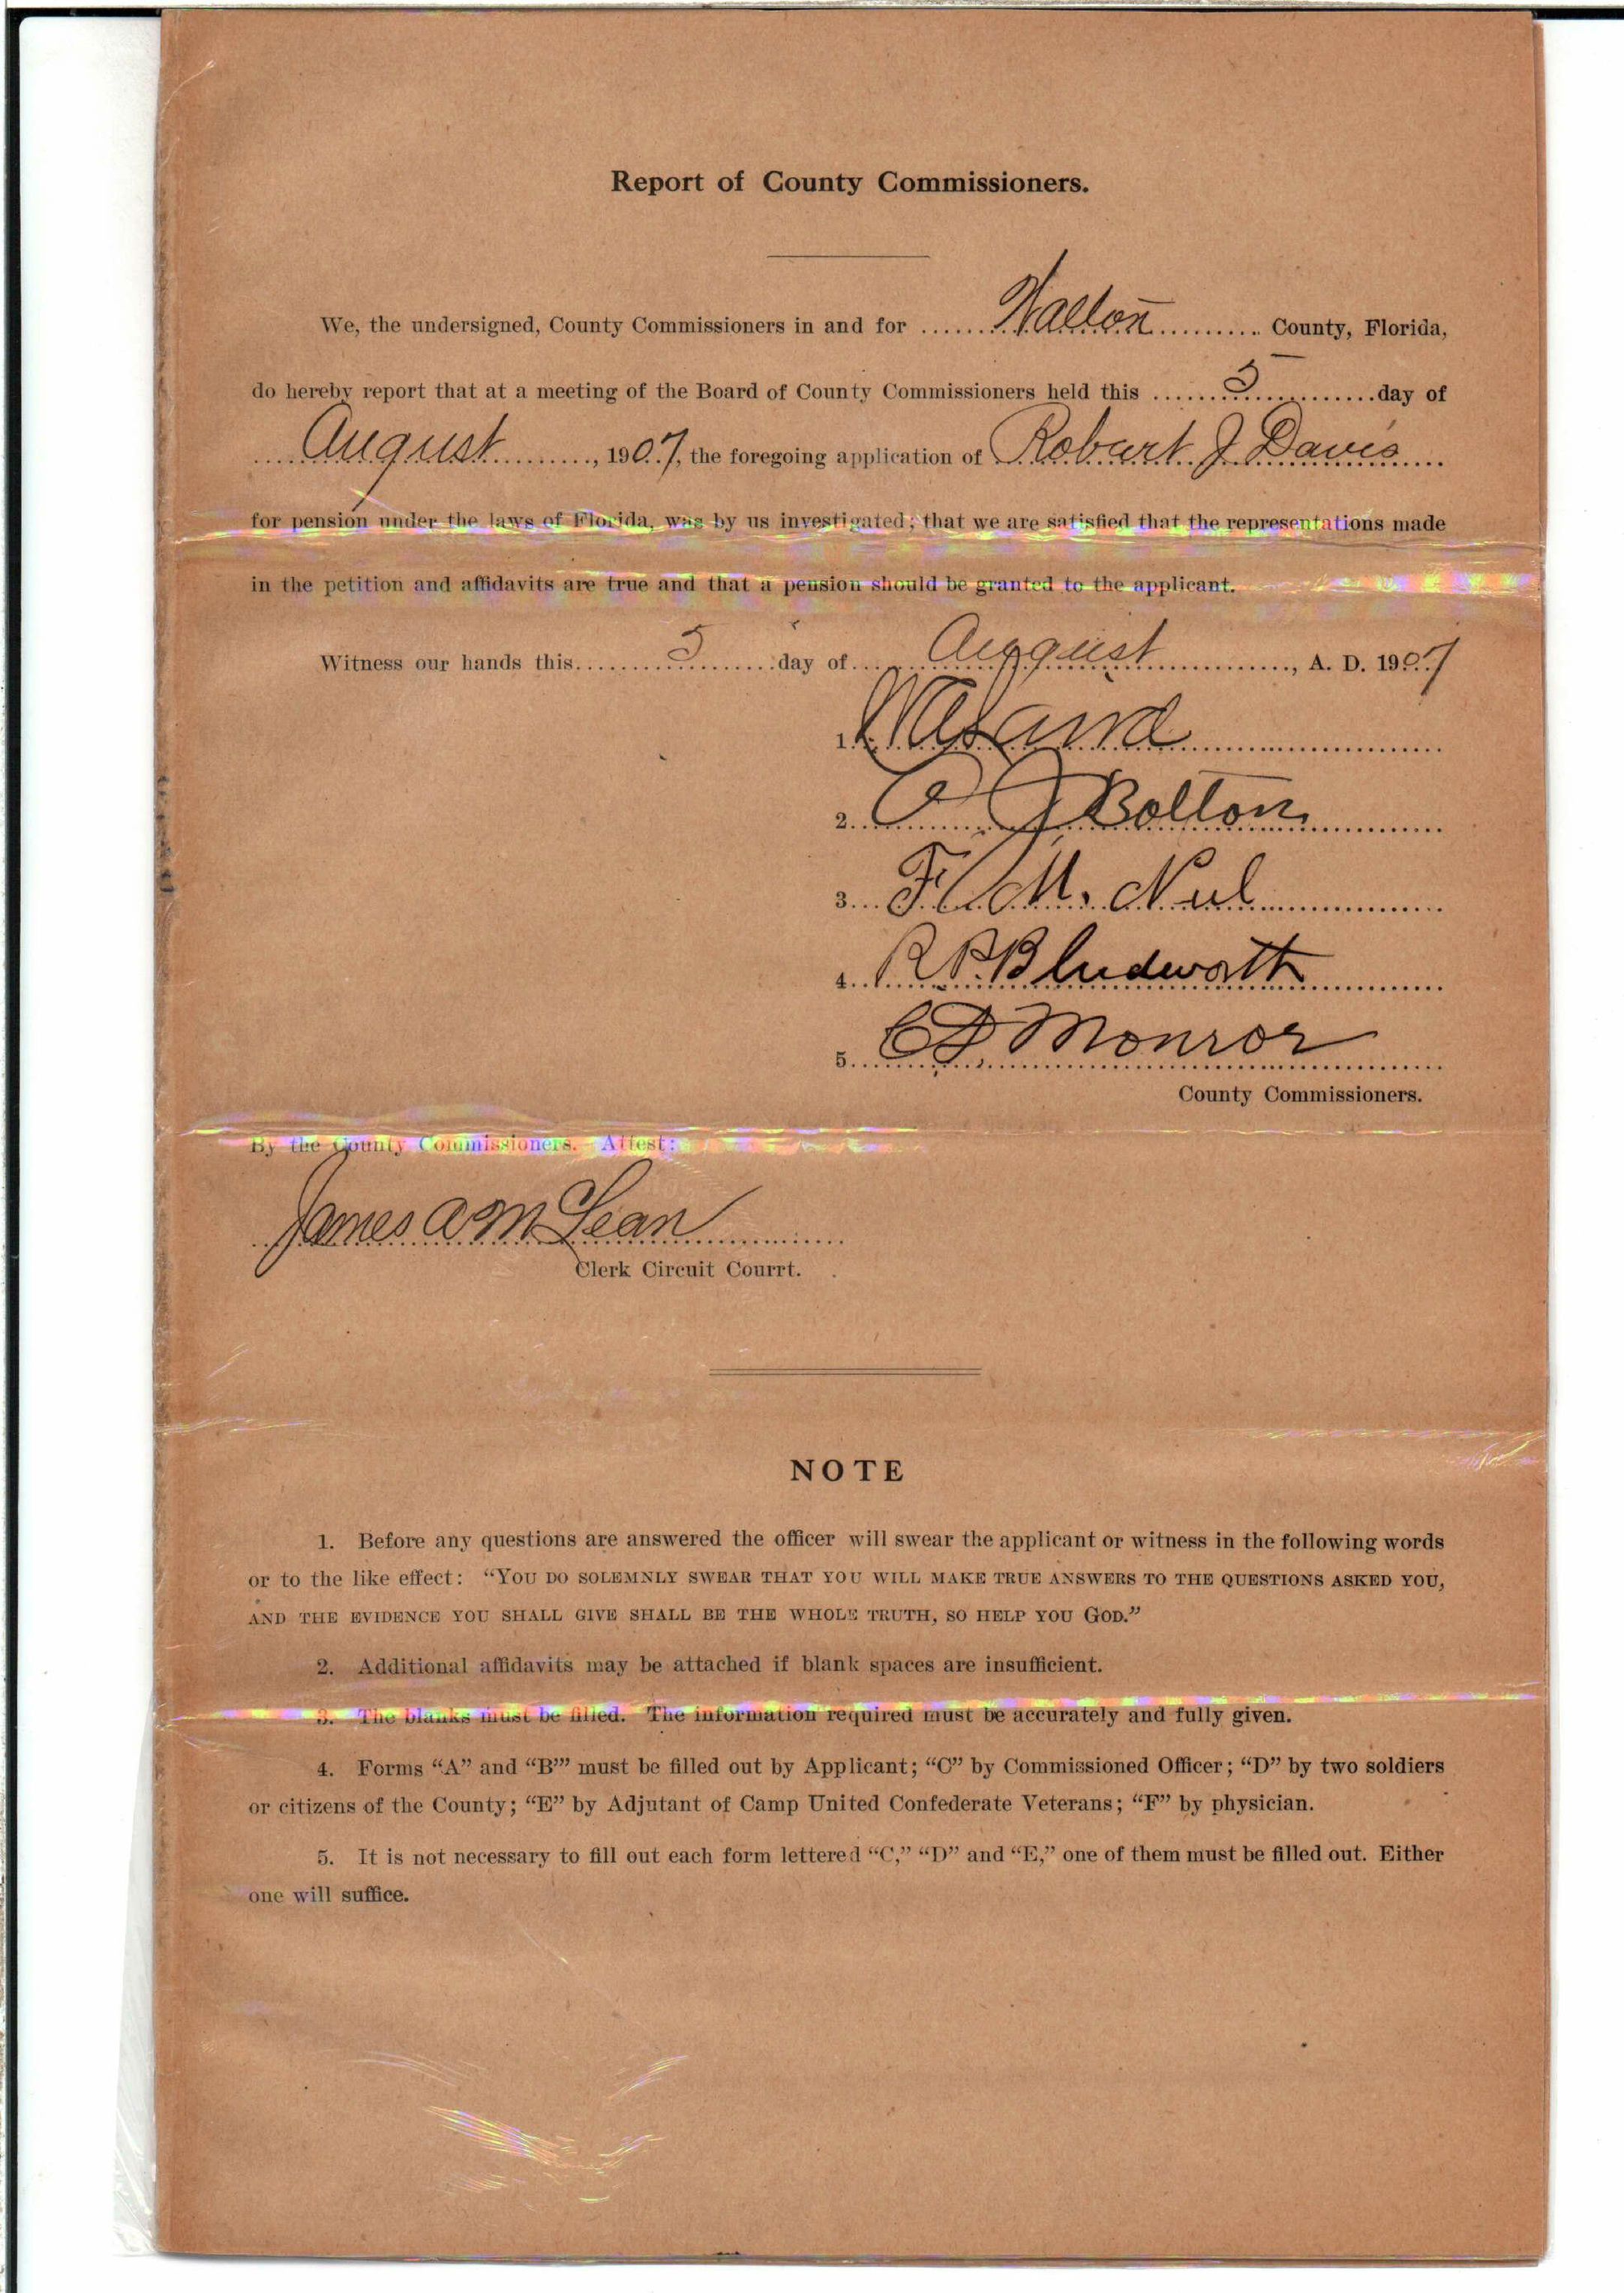 Report of County Commissioners.
We, the undersigned, County Commissioners in and for ...... Walton .......... County, Florida,
do hereby report that at a meeting of the Board of County Commissioners held this ...... 5 .......... day of
.... August .........., 1907, the foregoing application of Robert J Davis ....
for pension under the laws of Florida, was by us investigated; that we are satisfied that the representations made
in the petition and affidavits are true and that a pension should be granted to the applicant.
Witness our hands this........ 5 ........day of.... August .........., A. D. 1907
1.
2. J Bolton
3.
4. R P. Bludworth
5. C D Monroe
County Commissioners.
By the County Commissioners. Attest:
James A McLean
Clerk Circuit Courrt.
NOTE
1. Before any questions are answered the officer will swear the applicant or witness in the following words
or to the like effect: “YOU DO SOLEMNLY SWEAR THAT YOU WILL MAKE TRUE ANSWERS TO THE QUESTIONS ASKED YOU,
AND THE EVIDENCE YOU SHALL GIVE SHALL BE THE WHOLE TRUTH, SO HELP YOU GOD.”
2. Additional affidavits may be attached if blank spaces are insufficient.
3. The blanks must be filled. The information required must be accurately and fully given.
4. Forms “A” and “B’” must be filled out by Applicant; “C” by Commissioned Officer; “D” by two soldiers
or citizens of the County; “E” by Adjutant of Camp United Confederate Veterans; “F” by physician.
5. It is not necessary to fill out each form lettered “C,” “D” and “E,” one of them must be filled out. Either
one will suffice.